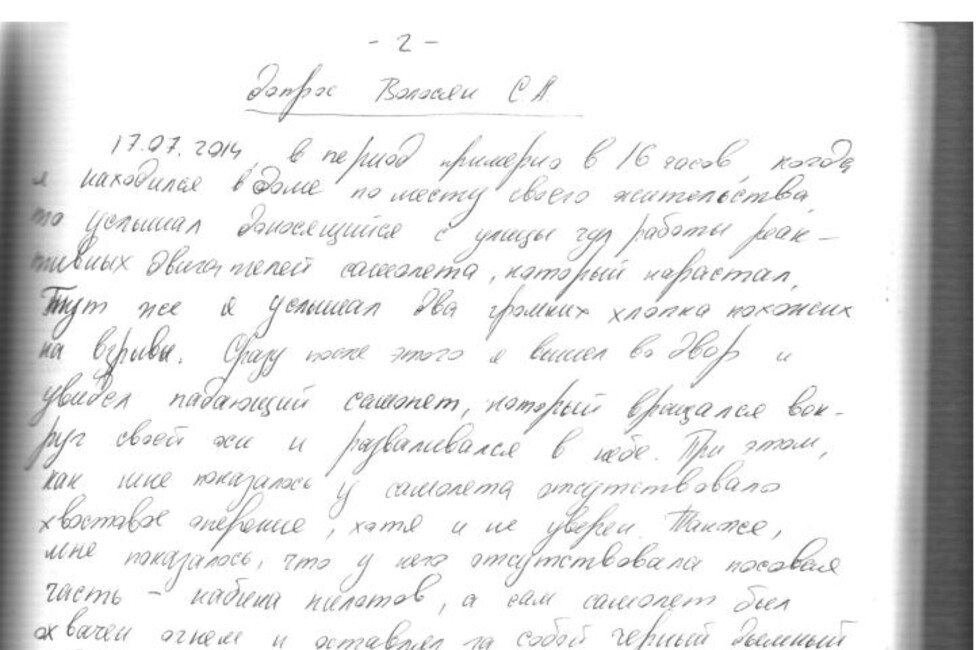 - 2 -
Допрос Волосян С.А.
17.07.2014, в период примерно в 16 часов, когда
я находился в доме по месту своего жительства,
то услышал доносящийся с улицы гул работы реак-
тивных двигателей самолета, который нарастал.
Тут же я услышал два громких хлопка похожих
на взрывы. Сразу после этого я вышел во двор и
увидел падающий самолет, который вращался вок-
руг своей оси и разваливался в небе. При этом,
как мне показалось у самолета отсутствовало
хвостовое оперение, хотя и не уверен. Также,
мне показалось, что у него отсутствовала носовая
часть - кабина пилотов, а сам самолет был
охвачен огнем и оставлял за собой черный дымный